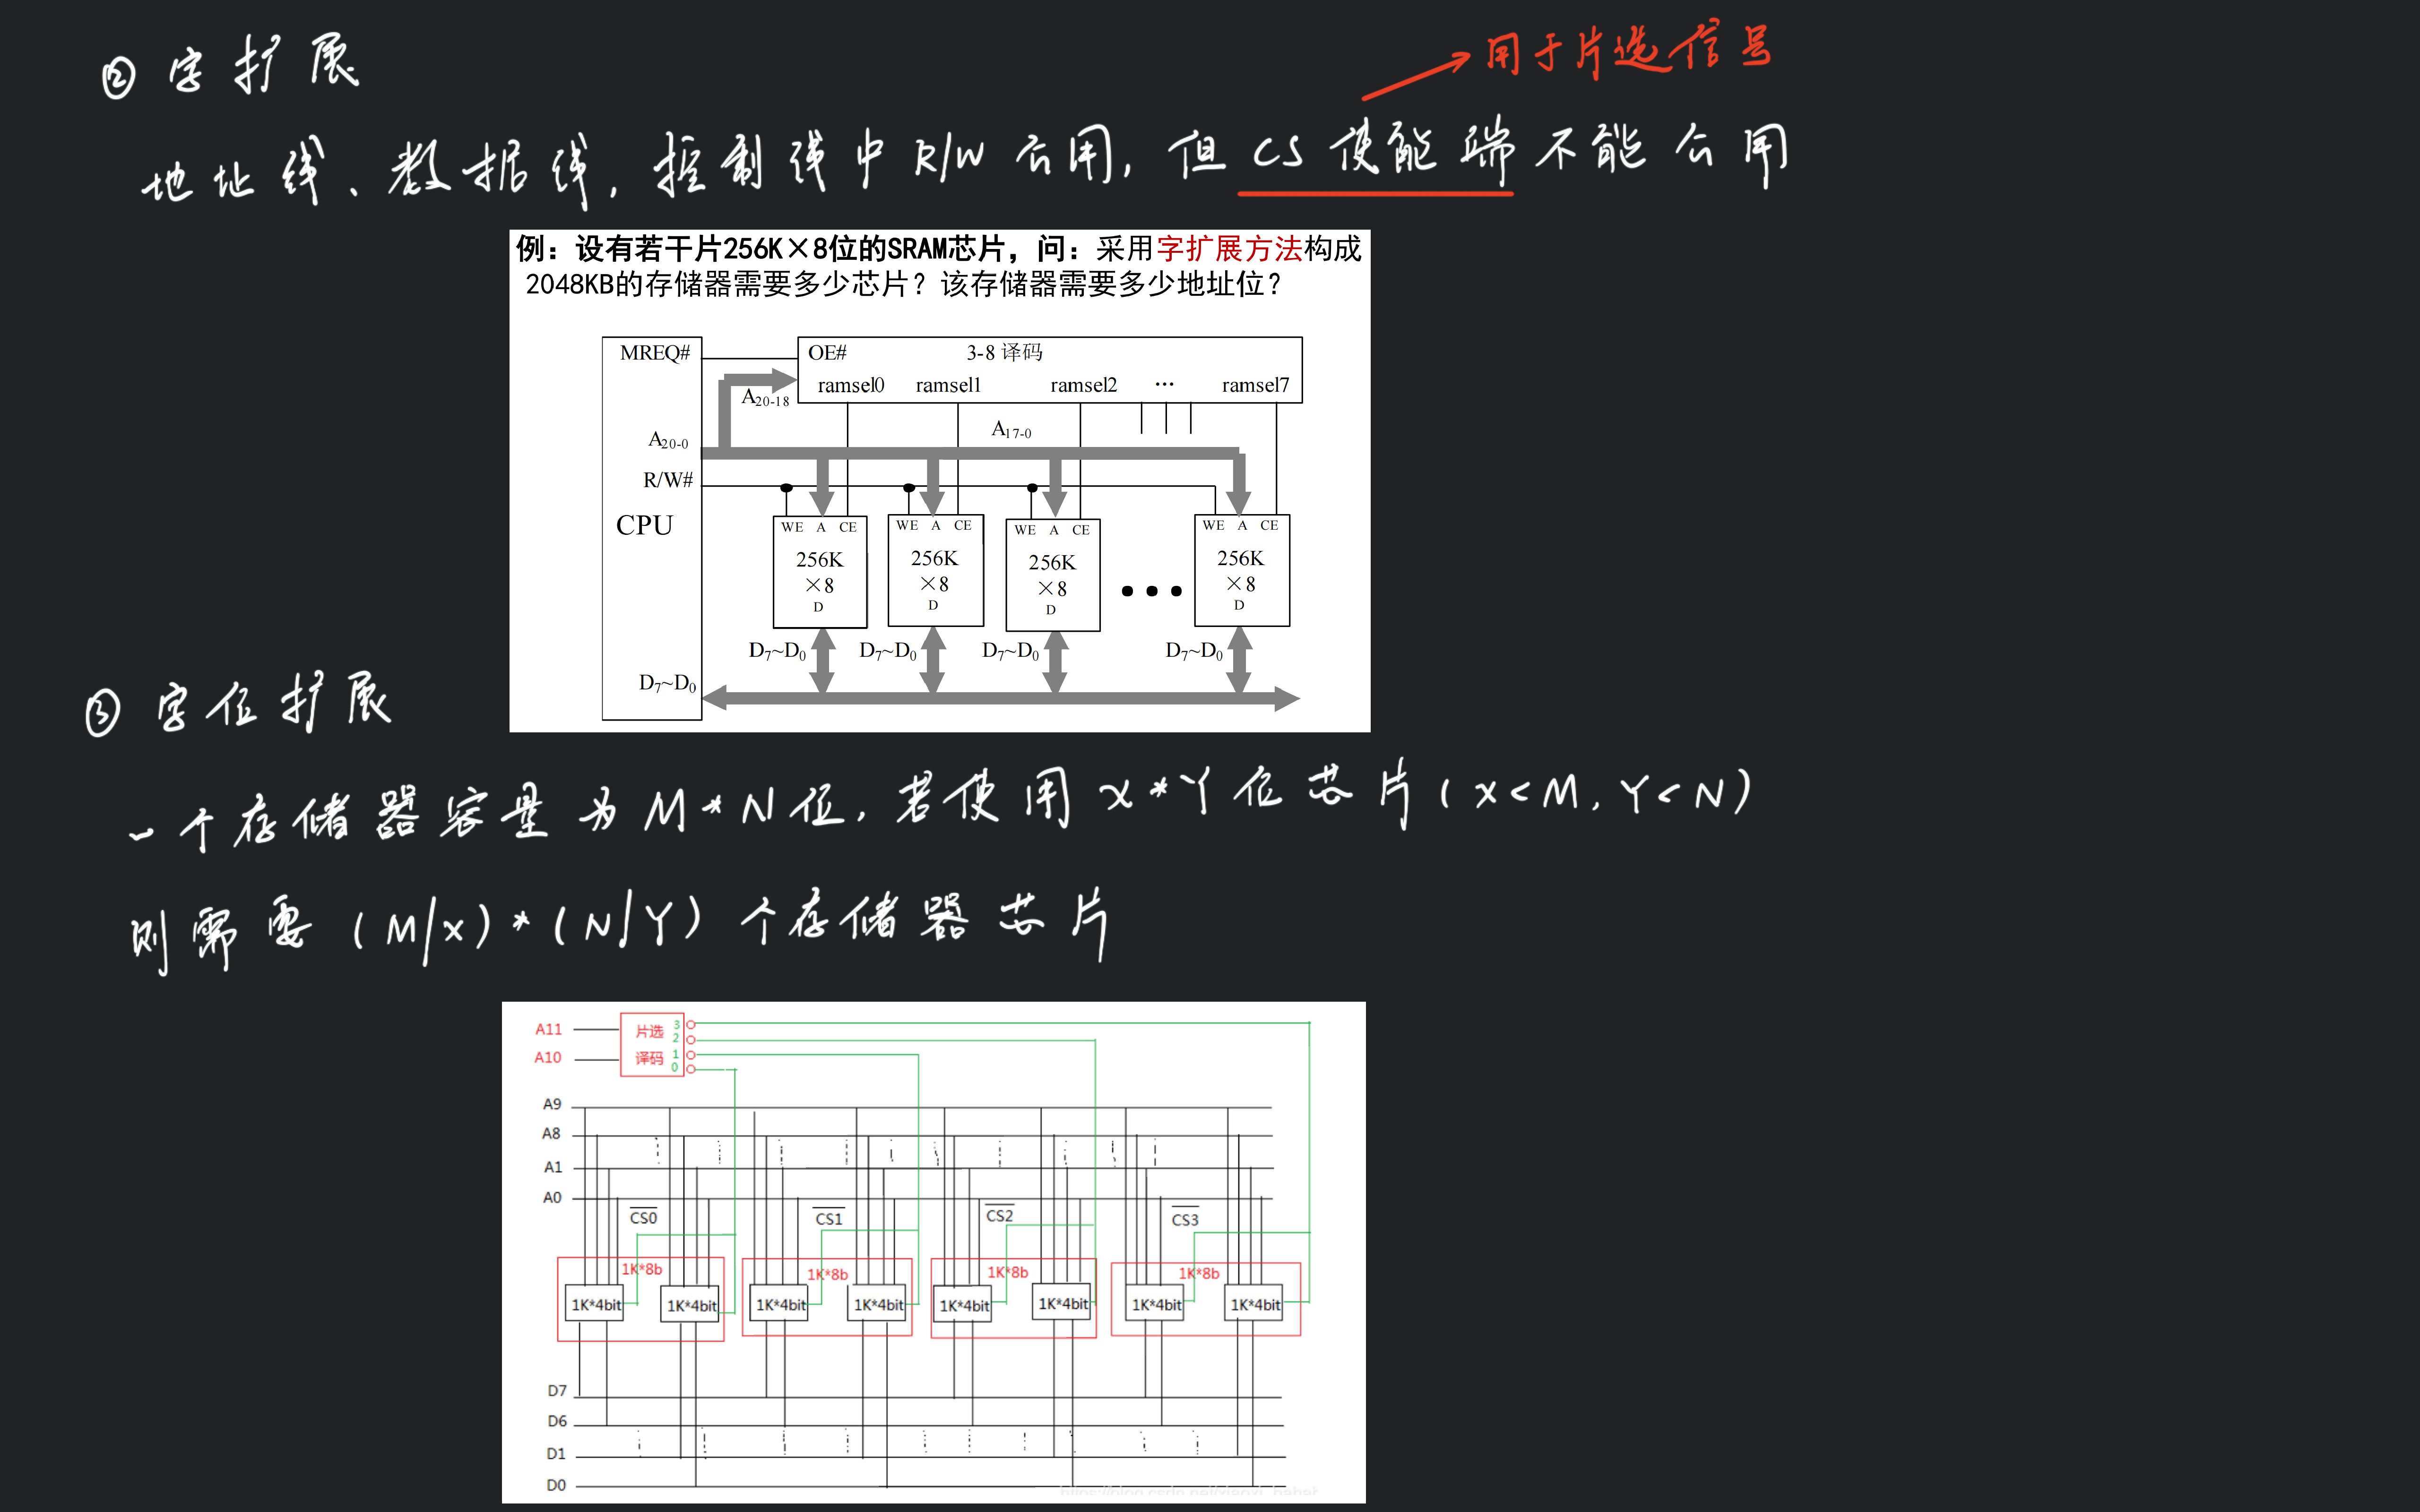 ② 字扩展
用于片选信号
地址线、数据线,控制线中R/W公用,但CS使能端不能公用
例：设有若干片256K×8位的SRAM芯片，问：采用字扩展方法构成
2048KB的存储器需要多少芯片？该存储器需要多少地址位？
MREQ# OE# 3-8 译码
ramsel0 ramsel1 ramsel2 ... ramsel7
A20-18
A17-0
A20-0
R/W#
CPU
WE A CE WE A CE WE A CE WE A CE
256K 256K 256K 256K
×8 ×8 ×8 ×8
D D D D
D7~D0 D7~D0 D7~D0 D7~D0
D7~D0
③ 字位扩展
一个存储器容量为M*N位,若使用X*Y位芯片(X<M,Y<N)
则需要(M/X)*(N/Y)个存储器芯片
A11 片选 3
2
A10 译码 1
0
A9
A8
A1
A0
CS0 CS1 CS2 CS3
1K*8b 1K*8b 1K*8b 1K*8b
1K*4bit 1K*4bit 1K*4bit 1K*4bit 1K*4bit 1K*4bit 1K*4bit 1K*4bit
D7
D6
D1
D0